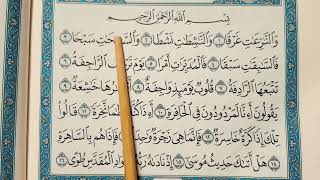 بِسْمِ اللَّهِ الرَّحْمَٰنِ الرَّحِيمِ
وَالنَّٰزِعَٰتِ غَرْقًا ١ وَالنَّٰشِطَٰتِ نَشْطًا ٢ وَالسَّٰبِحَٰتِ سَبْحًا ٣
فَالسَّٰبِقَٰتِ سَبْقًا ٤ فَالْمُدَبِّرَٰتِ أَمْرًا ٥ يَوْمَ تَرْجُفُ الرَّاجِفَةُ ٦
تَتْبَعُهَا الرَّادِفَةُ ٧ قُلُوبٌ يَوْمَئِذٍ وَاجِفَةٌ ٨ أَبْصَٰرُهَا خَٰشِعَةٌ ٩
يَقُولُونَ أَءِنَّا لَمَرْدُودُونَ فِي الْحَافِرَةِ ١٠ أَءِذَا كُنَّا عِظَٰمًا نَّخِرَةً ١١ قَالُوا
تِلْكَ إِذًا كَرَّةٌ خَاسِرَةٌ ١٢ فَإِنَّمَا هِيَ زَجْرَةٌ وَٰحِدَةٌ ١٣ فَإِذَا هُم بِالسَّاهِرَةِ
١٤ هَلْ أَتَىٰكَ حَدِيثُ مُوسَىٰ ١٥ إِذْ نَادَىٰهُ رَبُّهُ بِالْوَادِ الْمُقَدَّسِ طُوًى ١٦